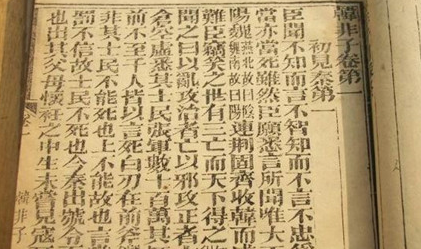 韓非子卷第一
初見秦第一
臣聞不知而言不智知而不言不忠
當亦當死雖然臣願悉言所聞唯大
陽魏燕北故曰陰魏南故曰陽連荊固齊收韓而成
難臣竊笑之世有三亡而天下得之
聞之曰以亂攻治者亡以邪攻正者
倉空虛悉其士民張軍數十百萬其
前不至千人皆以言死白刃在前斧
非其士民不能死也上不能故也言
罰不信故士民不死也今秦出號令
也出其父母懷衽之中生未嘗見寇
韓非子